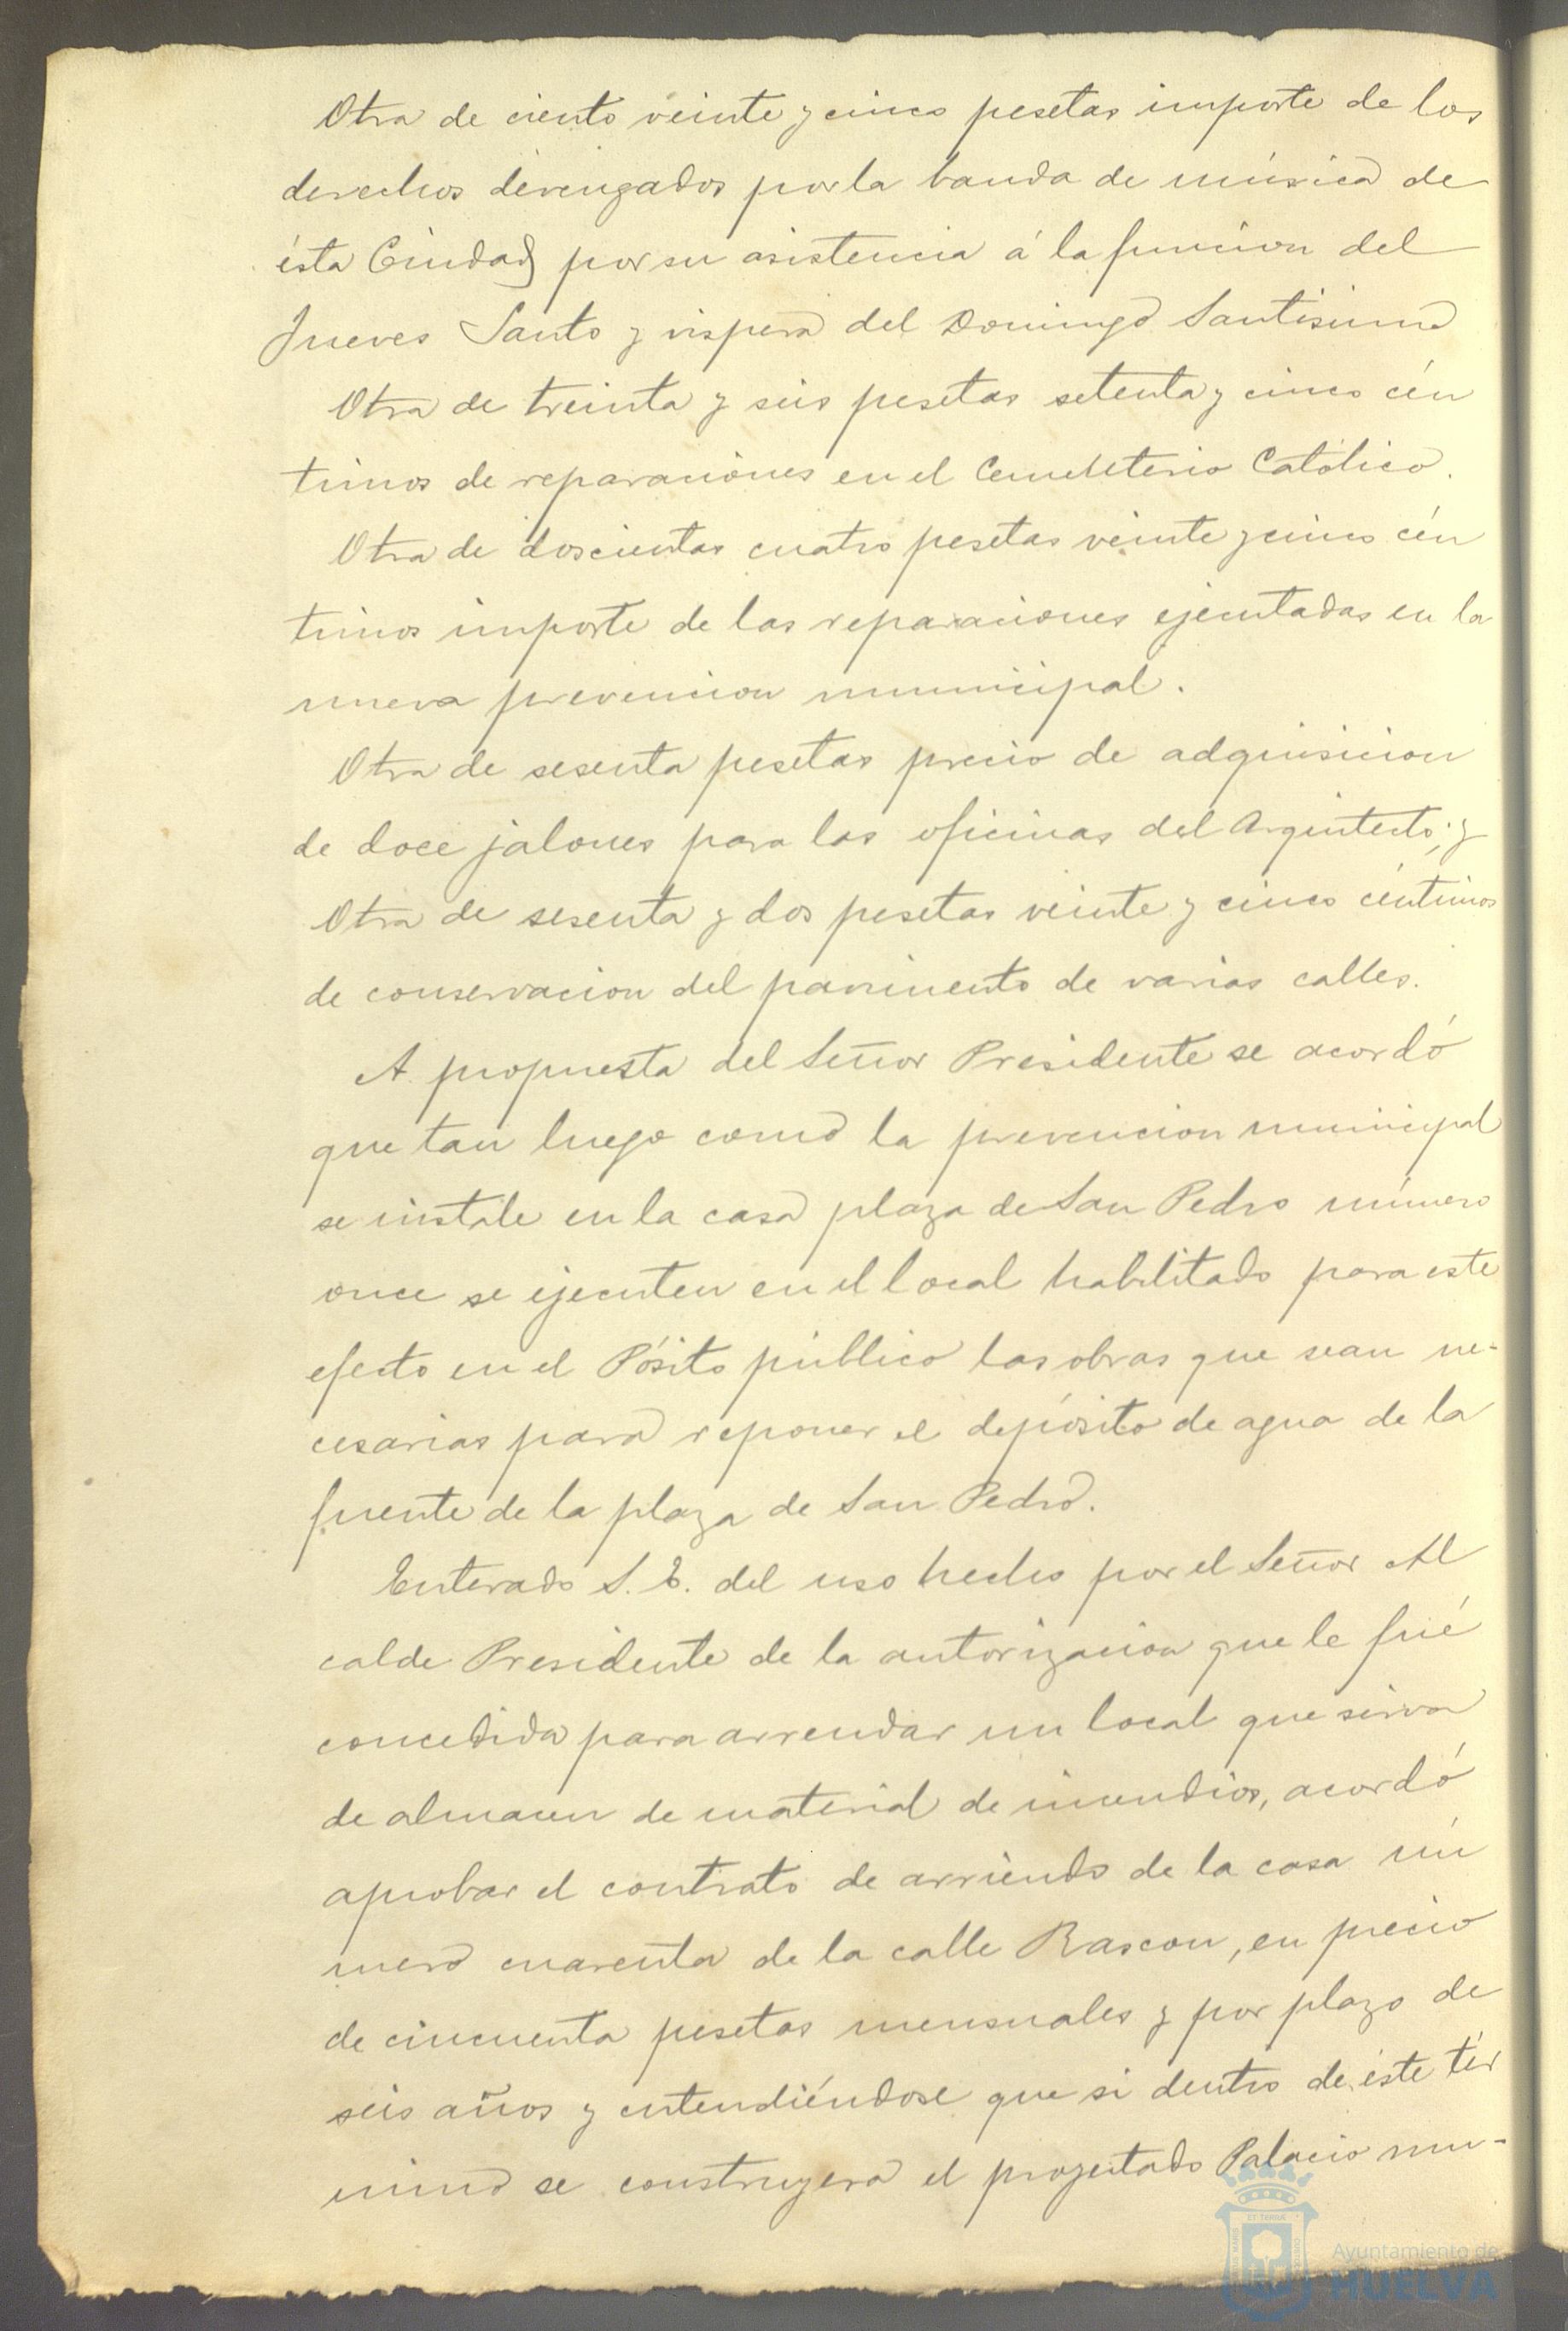 Otra de ciento veinte y cinco pesetas importe de los
derechos devengados por la banda de música de
ésta Ciudad por su asistencia á la funcion del
Jueves Santo y vispera del Domingo Santisimo
Otra de treinta y seis pesetas setenta y cinco cén
timos de reparaciones en el Cementerio Católico.
Otra de doscientas cuatro pesetas veinte y cinco cén
timos importe de las reparaciones ejecutadas en la
nueva prevencion municipal.
Otra de sesenta pesetas precio de adquisicion
de doce jalones para las oficinas del Arquitecto; y
Otra de sesenta y dos pesetas veinte y cinco céntimos
de conservacion del pavimento de varias calles.
A propuesta del Señor Presidente se acordó
que tan luego como la prevencion municipal
se instale en la casa plaza de San Pedro número
once se ejecuten en el local habilitado para este
efecto en el Pósito público las obras que sean ne-
cesarias para reponer el depósito de agua de la
fuente de la plaza de San Pedro.
Enterado S. E. del uso hecho por el Señor Al
calde Presidente de la autorizacion que le fué
concedida para arrendar un local que sirva
de almacen de material de incendios, acordó
aprobar el contrato de arriendo de la casa nú
mero cuarenta de la calle Rascon, en precio
de cincuenta pesetas mensuales y por plazo de
seis años y entendiéndose que si dentro de éste tér
mino se construyera el proyectado Palacio mu-
Ayuntamiento de
HUELVA